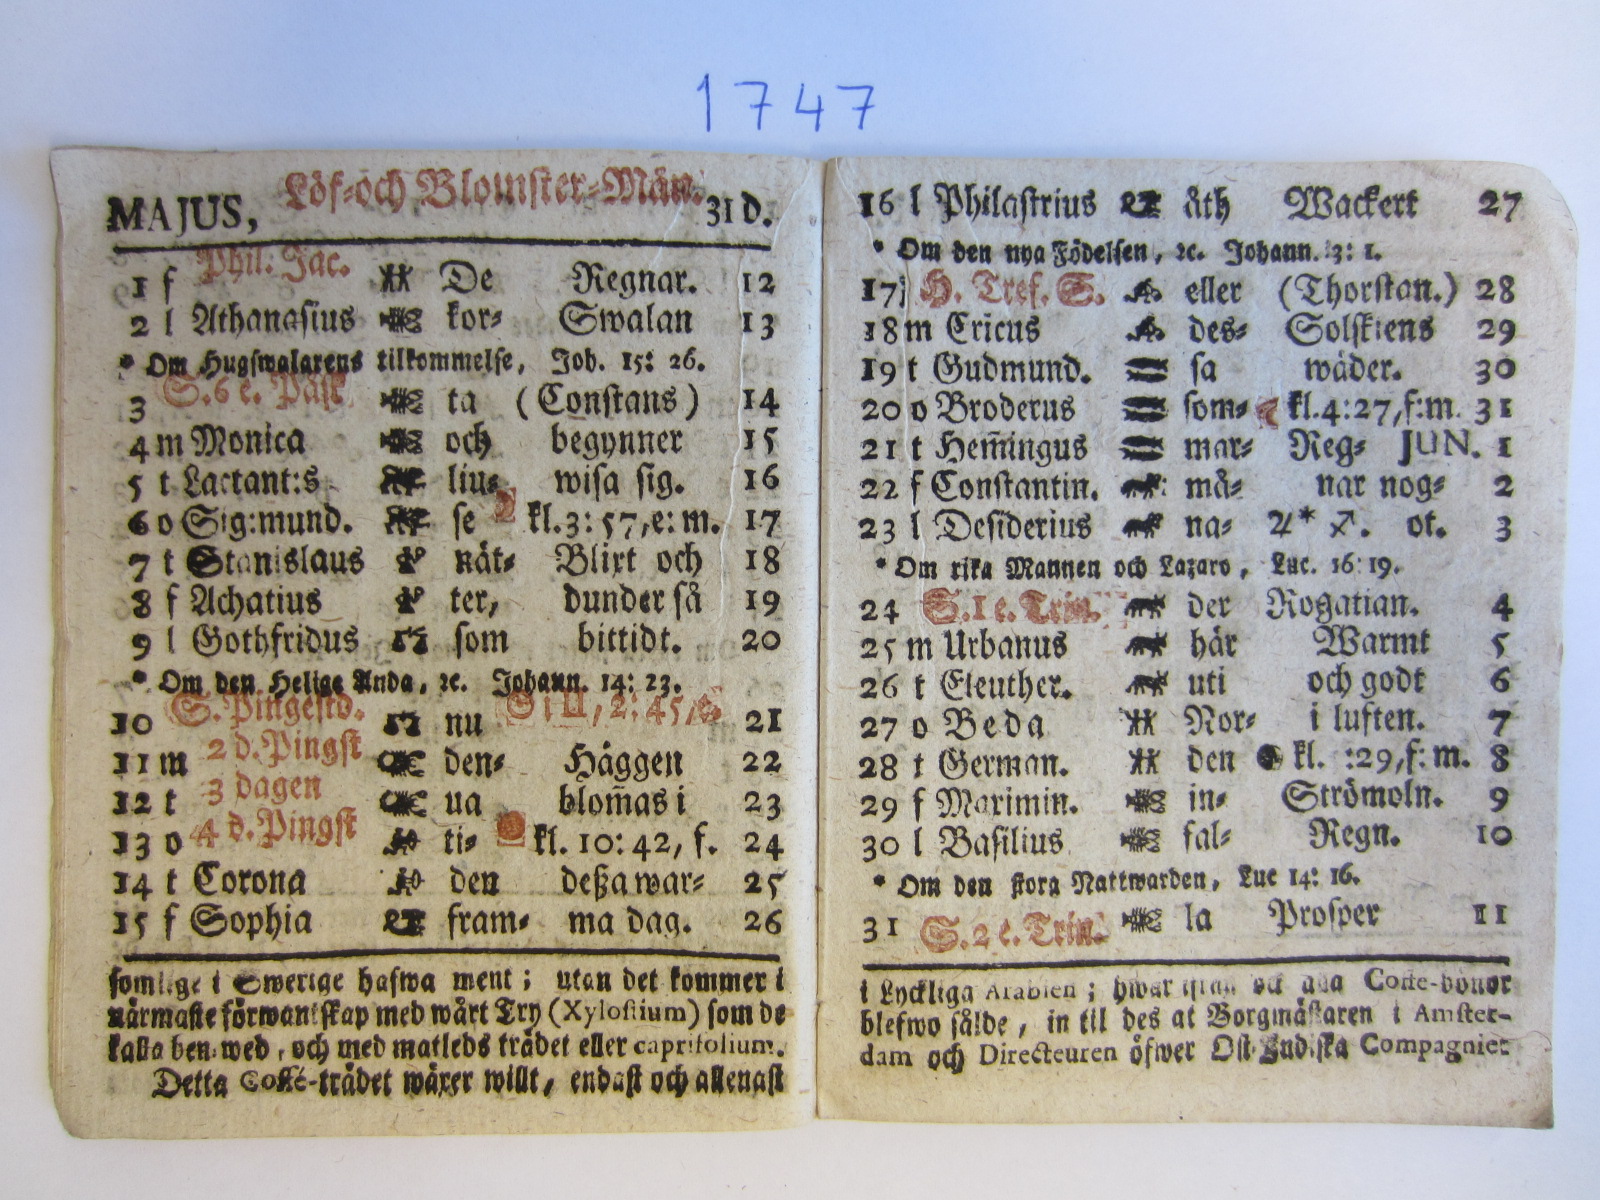 1747
MAJUS, Löf-och Blomster-Mån. 31 D.
1 f Phil. Jac. De Regnar. 12
2 l Athanasius kor- Swalan 13
* Om Hugswalarens tilkommelse, Joh. 15: 26.
3 S. 6 e. Påsk ta (Constans) 14
4 m Monica och begynner 15
5 t Lactant:s liu- wisa sig. 16
6 o Sig:mund. se kl. 3: 57, e: m. 17
7 t Stanislaus nät- Blixt och 18
8 f Achatius ter, dunder så 19
9 l Gothfridus som bittidt. 20
* Om den Helige Anda, ꝛc. Johann. 14: 23.
10 S. Pingestd. nu 2: 45, 21
11 m 2 d. Pingst den- Häggen 22
12 t 3 dagen ua blom̃as i 23
13 o 4 d. Pingst ti- kl. 10: 42, f. 24
14 t Corona den deßa war- 25
15 f Sophia fram- ma dag. 26
somlige i Swerige hafwa ment; utan det kommer i
närmaste förwantskap med wårt Try (Xylostium) som de
kalla ben-wed, och med matleds trädet eller caprifolium.
Detta Coffé-trädet wäxer willt, endast och allenast
16 l Philastrius åth Wackert 27
* Om den nya Födelsen, ꝛc. Johann. 3: 1.
17 H. Tref. S. eller (Thorstan.) 28
18 m Ericus des- Solskiens 29
19 t Gudmund. sa wäder. 30
20 o Broderus som- kl. 4: 27, f: m. 31
21 t Hem̃ingus mar- Reg- JUN. 1
22 f Constantin. må- nar nog- 2
23 l Desiderius na- ♃ * ♐. ot. 3
* Om rika Mannen och Lazaro, Luc. 16: 19.
24 S. 1 e. Trin. der Rogatian. 4
25 m Urbanus här Warmt 5
26 t Eleuther. uti och godt 6
27 o Beda Nor- i luften. 7
28 t German. den kl. :29, f: m. 8
29 f Maximin. in- Strömoln. 9
30 l Basilius fal- Regn. 10
* Om den stora Nattwarden, Luc 14: 16.
31 S. 2 e. Trin. la Prosper 11
i Lyckliga Arabien; hwar Coffe-bönor
blefwo sålde, in til des at Borgmästaren i Amster-
dam och Directeuren öfwer Ost-Indiska Compagniet